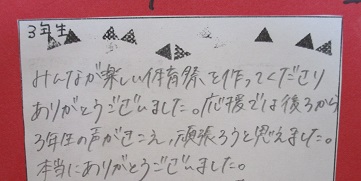 3年生
みんなが楽しい体育祭を作ってくださり
ありがとうございました。応援では後ろから
3年生の声がきこえ、頑張ろうと思えました。
本当にありがとうございました。